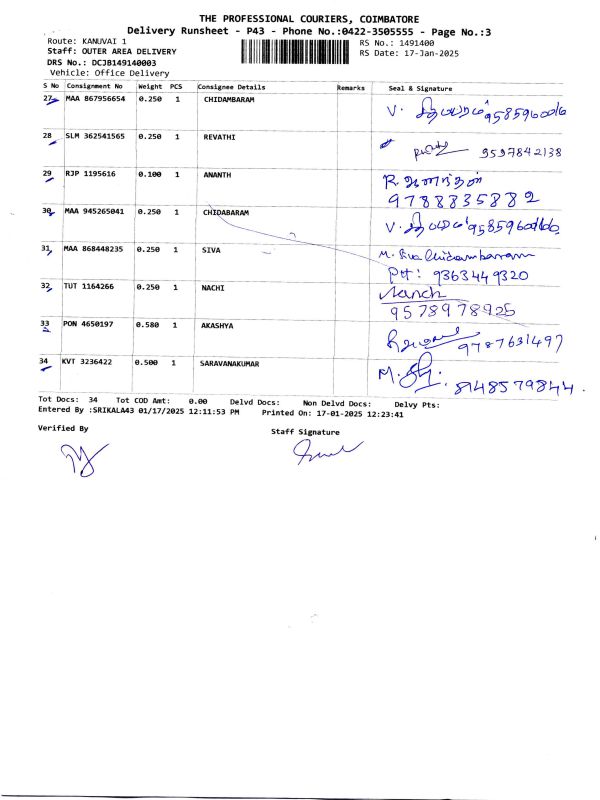 THE PROFESSIONAL COURIERS, COIMBATORE
Delivery Runsheet - P43 - Phone No.:0422-3505555 - Page No.:3
Route: KANUVAI 1 RS No.: 1491400
Staff: OUTER AREA DELIVERY RS Date: 17-Jan-2025
DRS No.: DCJB149140003
Vehicle: Office Delivery
S No Consignment No Weight PCS Consignee Details Remarks Seal & Signature
27 MAA 867956654 0.250 1 CHIDAMBARAM V.
28 SLM 362541565 0.250 1 REVATHI 9597842138
29 RJP 1195616 0.100 1 ANANTH R. ஆனந்தன்
9788835882
30 MAA 945265041 0.250 1 CHIDABARAM V.
31 MAA 868448235 0.250 1 SIVA M. Siva Chidambaram
PH: 9363449320
32 TUT 1164266 0.250 1 NACHI Nanch
9578978925
33 PON 4650197 0.580 1 AKASHYA 9787631497
34 KVT 3236422 0.500 1 SARAVANAKUMAR M. 8148579844.
Tot Docs: 34 Tot COD Amt: 0.00 Delvd Docs: Non Delvd Docs: Delvy Pts:
Entered By :SRIKALA43 01/17/2025 12:11:53 PM Printed On: 17-01-2025 12:23:41
Verified By Staff Signature